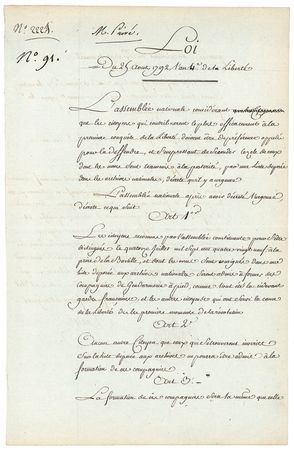 N.º 2224.
M. Privé
N.º 91.
Loi
Du 25 Aout 1792 L'an 4.e de la Liberté
L'assemblée nationale considérant
que les citoyens qui contribuerent le plus efficacement à la
premiere conquête de la Liberté doivent être de préférence appellé
pour la deffendre, et s'empressant de seconder le zele de ceux
dont les noms sont transmis à la postérité, par une liste déposée
dans les archives nationales, décrete qu'il y a urgence
L'assemblée nationale après avoir décrété l'urgence,
décrete ce qui suit
Art 1.er
Les citoyens reconnus par l'assemblée constituante pour s'être
distingués le quatorze juillet mil sept cent quatre vingt neuf à la
prise de la Bastille, et dont les noms sont consignés dans une
liste déposée aux archives nationales seront admis à former des
compagnies de Gendarmerie à pied, comme l'ont été les cidevant
gardes françaises, et les autres citoyens qui ont servi la cause
de la Liberté dès les premiers moments de la révolution
Art 2.e
Aucun autre Citoyen que ceux qui se trouveront inscrits
sur la liste déposée aux archives ne pourra être admis à la
formation de ces compagnies
Art 3.e
La formation de ces compagnies sera la même que celle